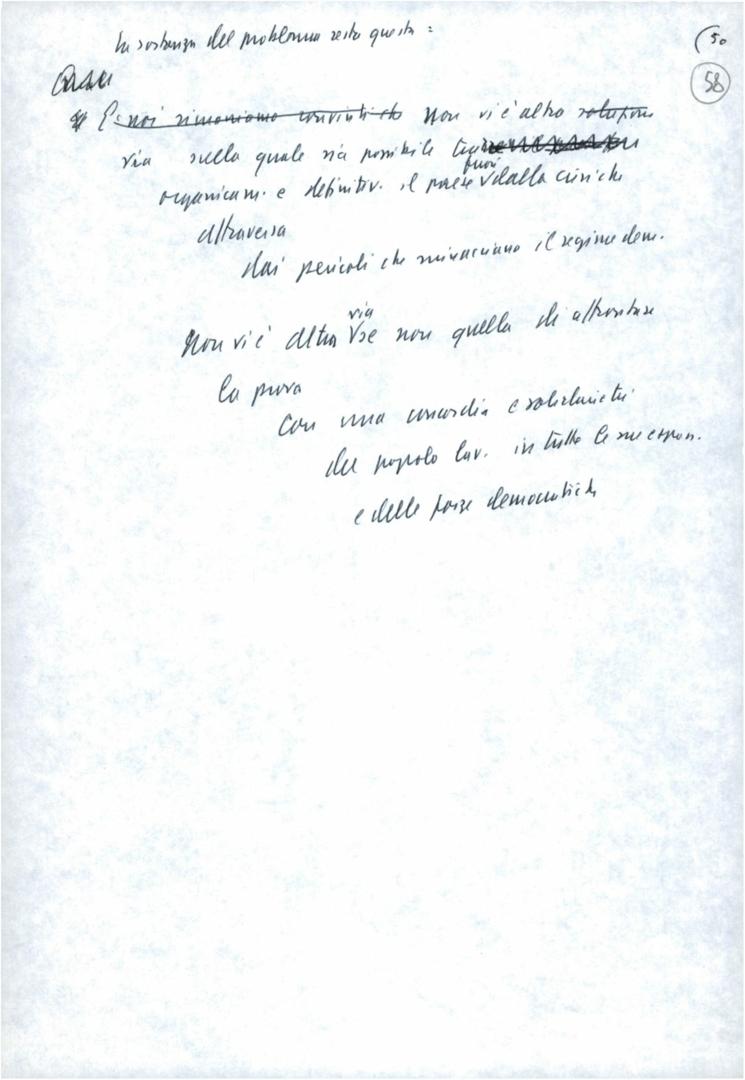 La sostanza del problema resta questa :
(50
58
E noi rimaniamo convinti che non vi è altra soluzione
via sulla quale sia possibile
fuori
organicam. e definitiv. il paese dalla crisi che
attraversa
dai pericoli che minacciano il regime dem.
via
Non vi è altra se non quella di affrontare
la prova
con una concordia e solidarietà
del popolo lav. in tutte le sue espres.
e delle forze democratiche